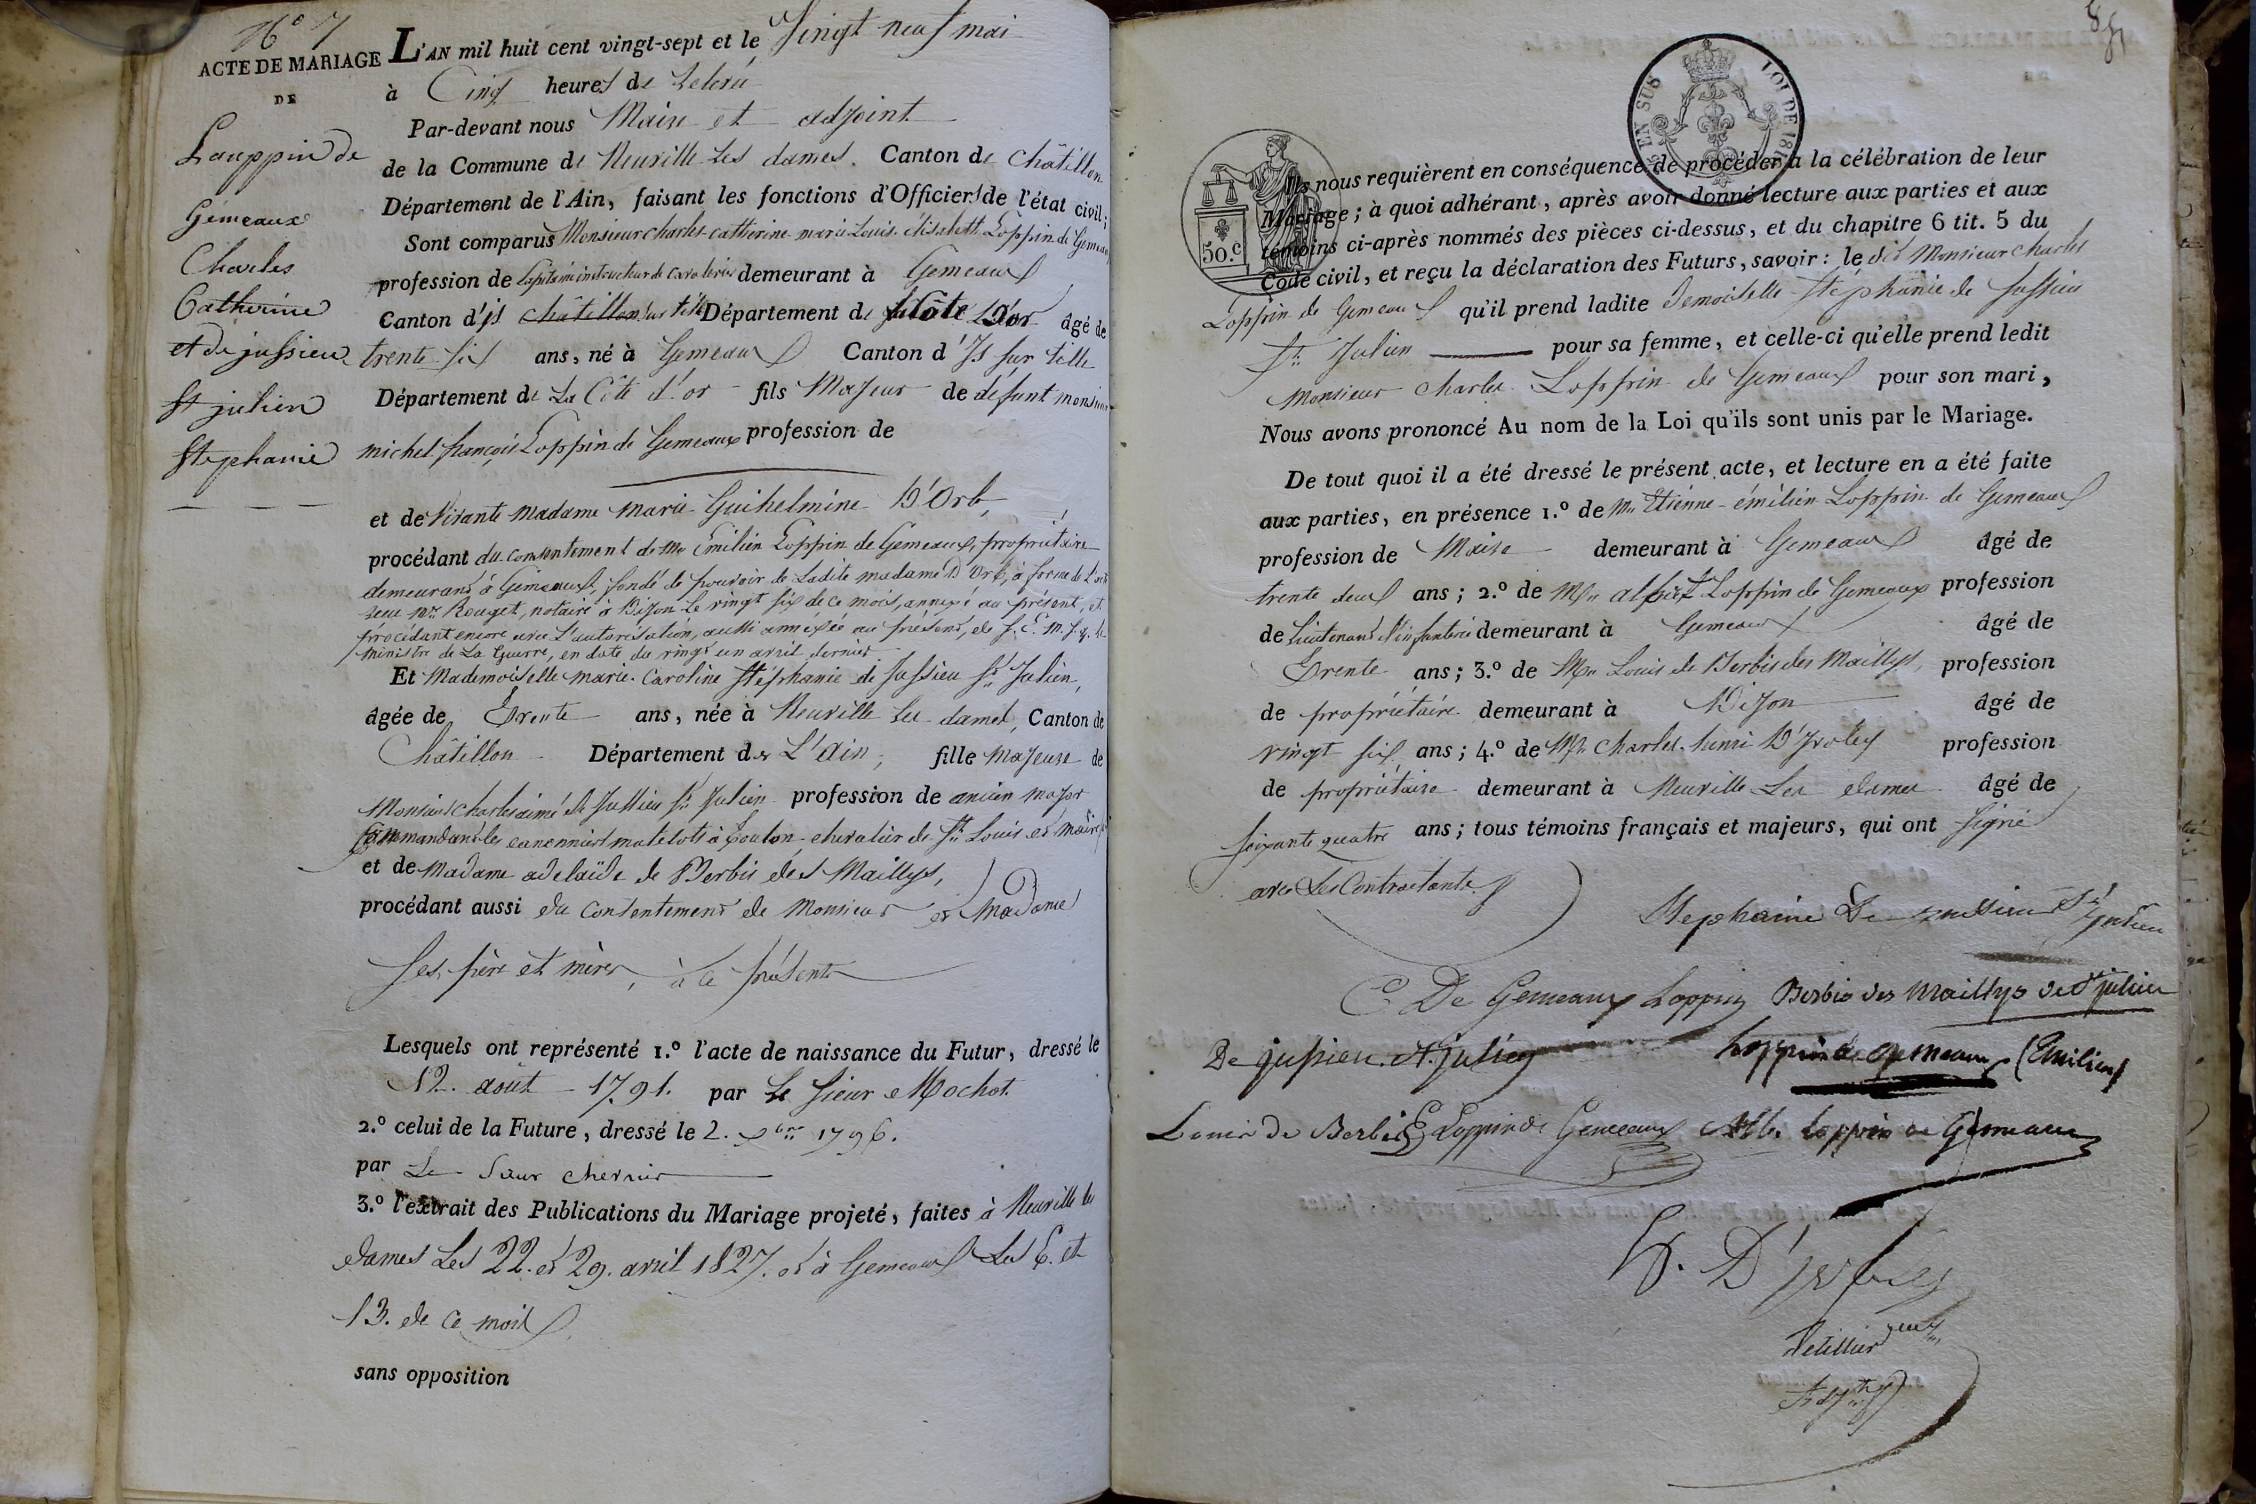 N.o 7
ACTE DE MARIAGE
DE
Lauppin de
Gémeaux
Charles
Catherine
et de jussieu
St julien
Stephanie
L'AN mil huit cent vingt-sept et le Vingt neuf mai
à Cinq heures de relevée
Par-devant nous Maire et adjoint
de la Commune de Neuville les dames. Canton de Châtillon
Département de l'Ain, faisant les fonctions d'Officiers de l'état civil;
Sont comparus Monsieur Charles-catherine-marie Louis-élisabeth Loppin de Gemeaux
profession de Capitaine instructeur de cavalerie demeurant à Gemeaux
Canton d'is châtillon sur tille Département de la Côte D'or âgé de
trente six ans, né à Gemeaux Canton d'Is sur tille
Département de La Côte d'or fils Majeur de défunt monsieur
michel françois Loppin de Gemeaux profession de
et de vivante Madame Marie Guihelmine D'Orb,
procédant du consentement de Mr Emilien Loppin de Gemeaux, propriétaire
demeurant à Gemeaux, fondé de pouvoir de Ladite madame D'Orb, à forme de L'acte
reçu Mr Rouget, notaire à Dijon le vingt six de ce mois, annexé au présent, et
procédant encore avec L'autorisation, aussi annexée au présent, de S. E. M. g. le
Ministre de La Guerre, en date du vingt un avril dernier
Et Mademoiselle marie-Caroline Stéphanie de Jussieu St Julien,
âgée de Trente ans, née à Neuville les dames, Canton de
Châtillon Département de L'Ain, fille Majeure de
Monsieur charles aimé de Jussieu St Julien profession de ancien major
commandant les canonniers matelots à Toulon chevalier de St Louis et maire
et de Madame adelaïde de Berbis des Maillys,
procédant aussi du Consentement de Monsieur et Madame
Ses père et mère, à ce présents
Lesquels ont représenté 1.o l'acte de naissance du Futur, dressé le
12. août 1791. par Le Sieur Mochot.
2.o celui de la Future, dressé le 2. 1796.
par Le Sieur
3.o l'extrait des Publications du Mariage projeté, faites à Neuville les
dames Les 22. et 29. avril 1827. et à Gemeaux Les 6. et
13. de ce mois
sans opposition
EN SUS
LOI DE 18
50.c
Ils nous requièrent en conséquence de procéder à la célébration de leur
Mariage; à quoi adhérant, après avoir donné lecture aux parties et aux
témoins ci-après nommés des pièces ci-dessus, et du chapitre 6 tit. 5 du
Code civil, et reçu la déclaration des Futurs, savoir: le dit Monsieur Charles
Loppin de Gemeaux qu'il prend ladite demoiselle Stéphanie de Jussieu
St Julien pour sa femme, et celle-ci qu'elle prend ledit
Monsieur Charles Loppin de Gemeaux pour son mari,
Nous avons prononcé Au nom de la Loi qu'ils sont unis par le Mariage.
De tout quoi il a été dressé le présent acte, et lecture en a été faite
aux parties, en présence 1.o de Mr Etienne-émilien Loppin de Gemeaux
profession de Maire demeurant à Gemeaux âgé de
trente deux ans; 2.o de Mr albert Loppin de Gemeaux profession
de Lieutenant d'infanterie demeurant à Gemeaux âgé de
Trente ans; 3.o de Mr Louis de Berbis des Maillys, profession
de propriétaire demeurant à Dijon âgé de
vingt six ans; 4.o de Mr Charles-henri D'Ivoley profession
de propriétaire demeurant à Neuville Les dames âgé de
soixante quatre ans; tous témoins français et majeurs, qui ont signé
avec Les Contractants
Stephanie De jussieu St julien
C De Gemeaux Loppin Berbis des Maillys de St julien
De jussieu St. julien Loppin de gemeaux (Emilien)
Louis de Berbis Loppin de Gemeaux Alb. Loppin de Gemeaux
H. D'ivoley